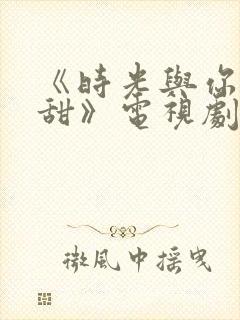 《時光與你
甜》電視劇
微風中摇曳